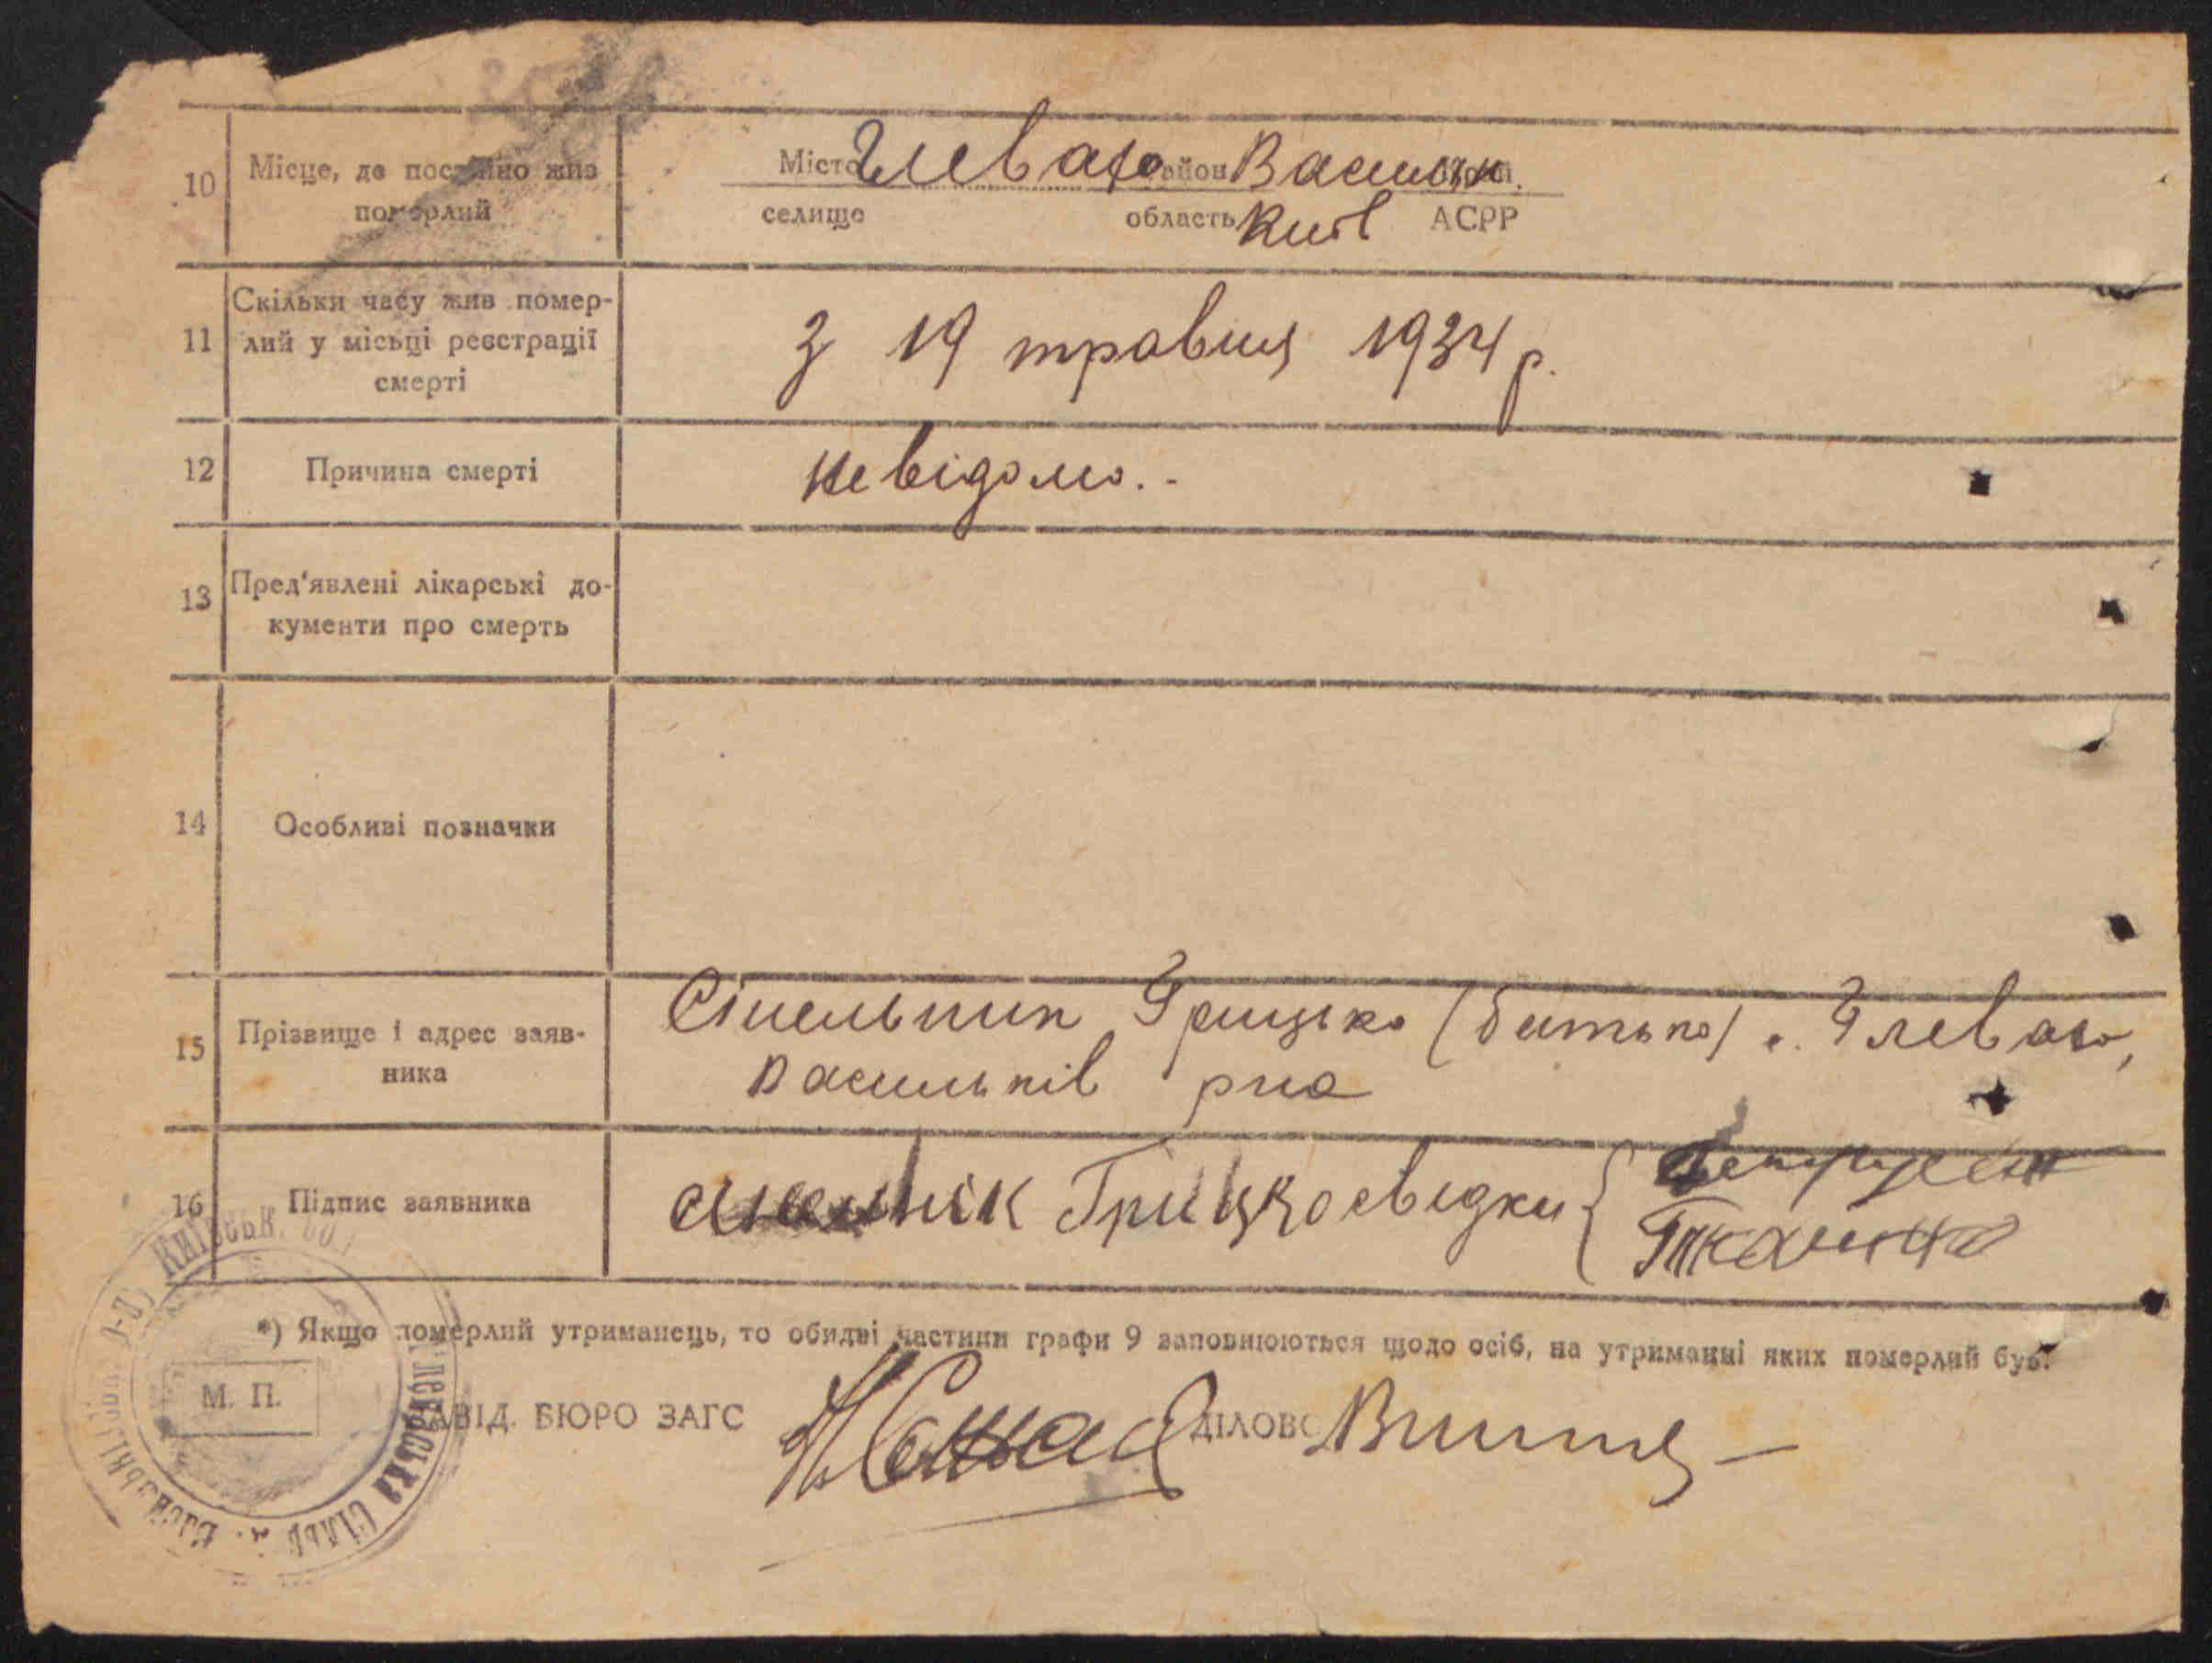 10 Місце, де постійно жив Місто Глеваха район Васильк.
померлий селище область Київ АСРР
Скільки часу жив помер-
11 лий у місьці реєстрації З 19 травня 1934 р.
смерті
12 Причина смерті невідомо.-
13 Пред'явлені лікарські до-
кументи про смерть
14 Особливі позначки
15 Прізвище і адрес заяв- Сінельник Грицько (батько) с. Глеваха,
ника Васильків р-на
16 Підпис заявника Грицко свідки {
Ткаченко
*) Якщо померлий утриманець, то обидві частини графи 9 заповнюються щодо осіб, на утриманні яких померлий був.
М. П. ЗАВІД. БЮРО ЗАГС ДІЛОВО